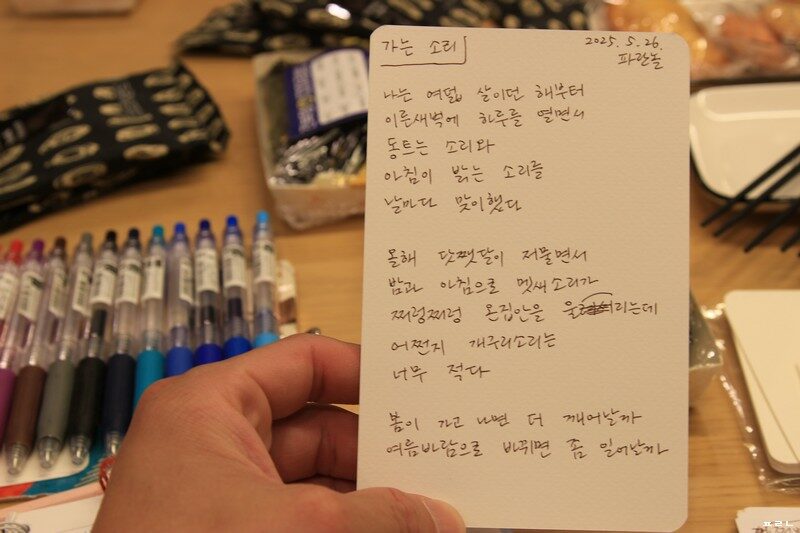 가는 소리
2025. 5. 26.
파란놀
나는 여덟 살이던 해부터
이른새벽에 하루를 열면서
동트는 소리와
아침이 밝는 소리를
날마다 맞이했다
올해 닷쨋달이 저물면서
밤과 아침으로 멧새소리가
쩌렁쩌렁 온집안을 울리는데
어쩐지 개구리소리는
너무 적다
봄이 가고 나면 더 깨어날까
여름바람으로 바뀌면 좀 일어날까
ㅍㄹㄴ